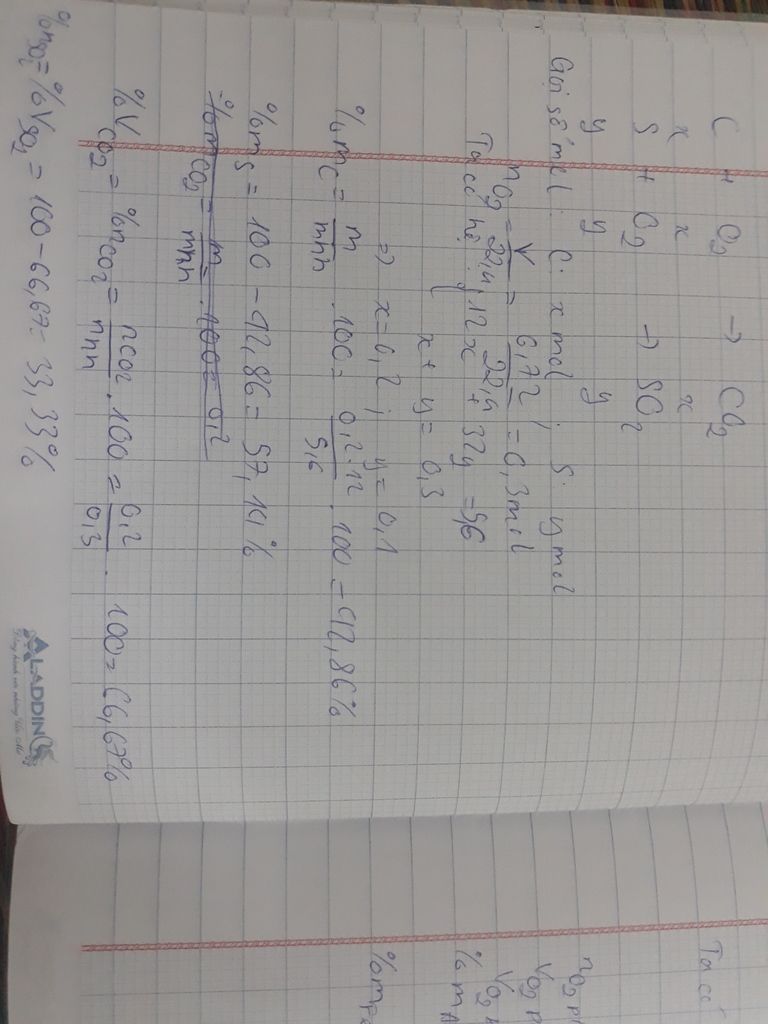 C + O2 → CO2
x x x
S + O2 → SO2
y y y
Gọi số mol: C: x mol ; S: y mol
nO2 = V/22,4 = 6,72/22,4 = 0,3 mol
Ta có hệ { 12x + 32y = 5,6
x + y = 0,3
=> x = 0,2 ; y = 0,1
%mC = m/mhh . 100 = 0,2.12/5,6 . 100 = 42,86%
%mS = 100 - 42,86 = 57,14%
%mCO2 = m/mhh . 100 = 0,2
%VCO2 = %nCO2 = nCO2/nhh . 100 = 0,2/0,3 . 100 = 66,67%
%nSO2 = %VSO2 = 100 - 66,67 = 33,33%
ALADDIN
Ta có
nO2 p
VO2 p
VO2
%mA
%mFe